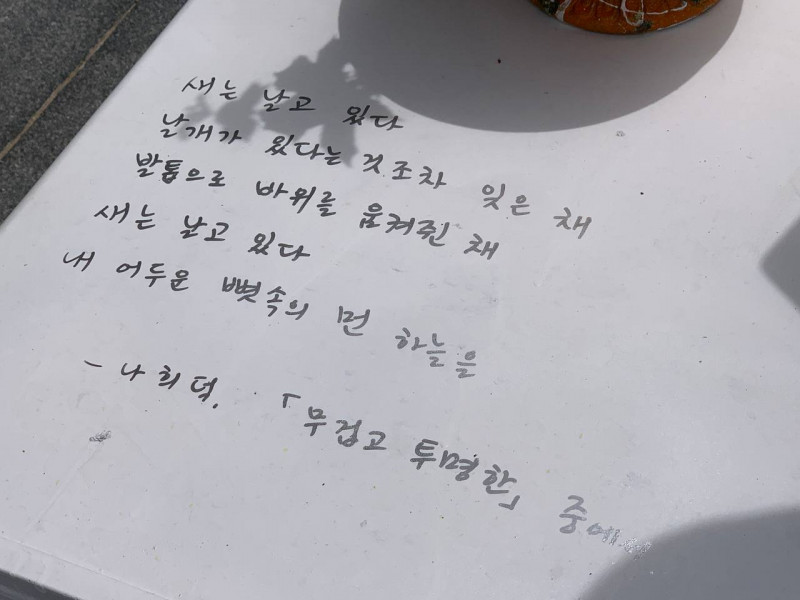 새는 날고 있다
날개가 있다는 것조차 잊은 채
발톱으로 바위를 움켜쥔 채
새는 날고 있다
내 어두운 뼛속의 먼 하늘을
- 나희덕. 「무겁고 투명한」 중에서